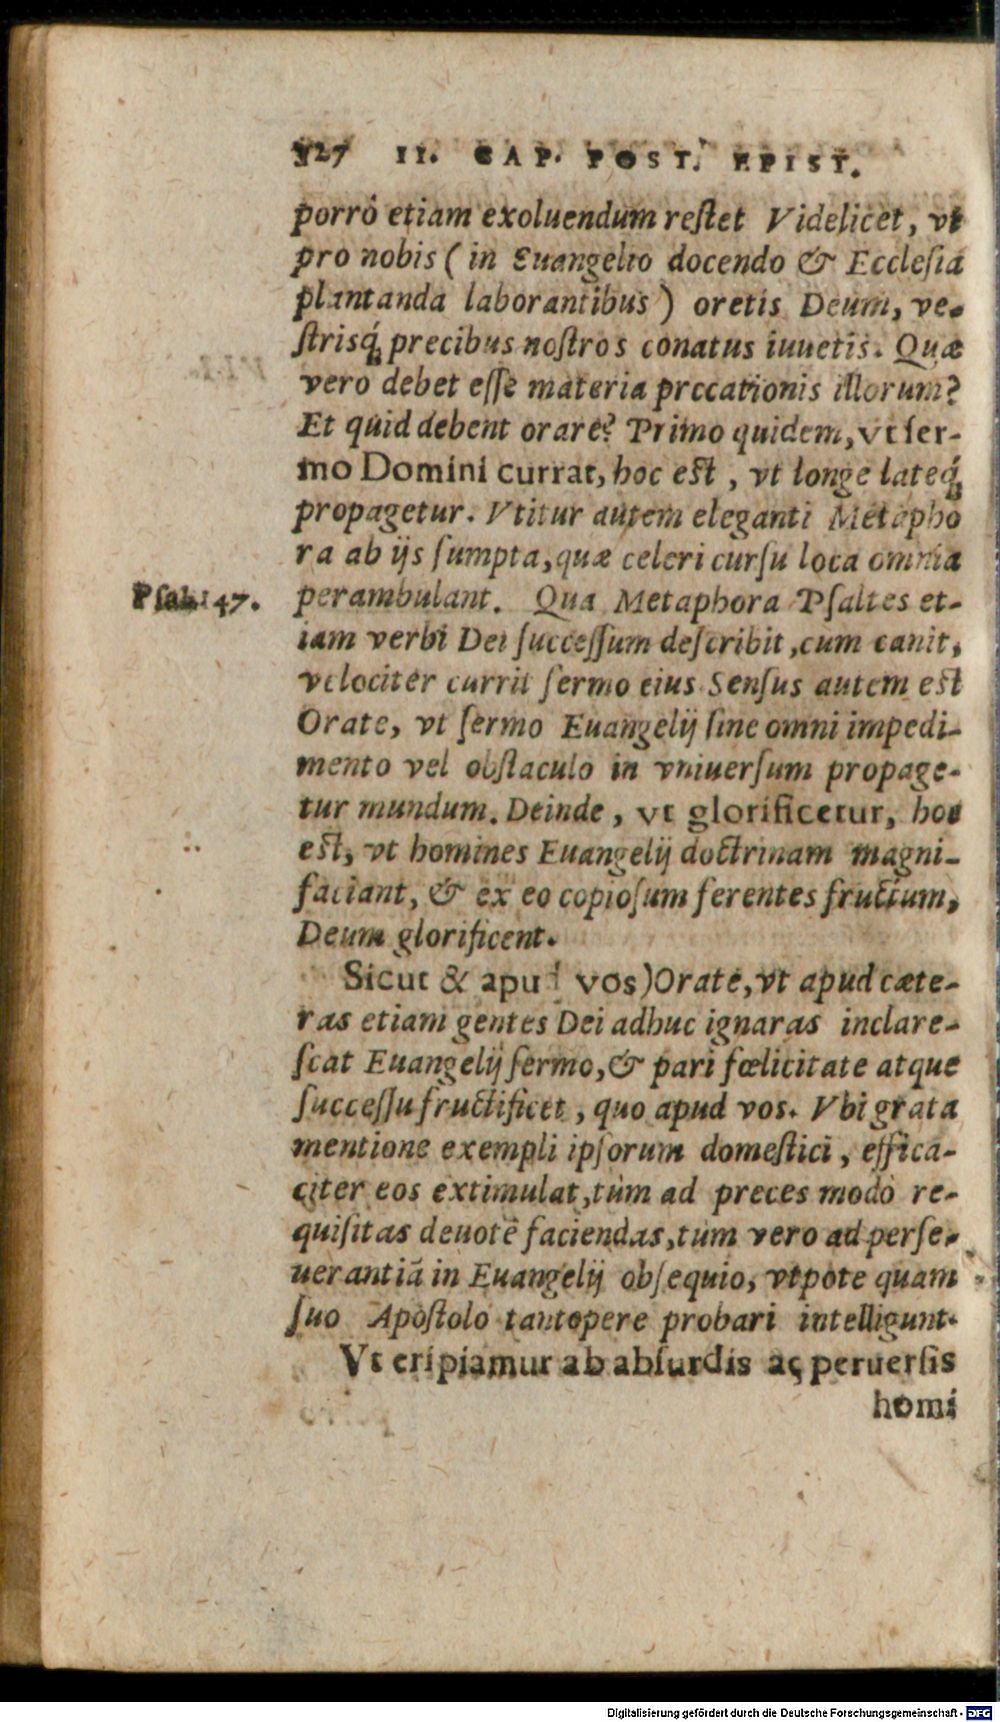 327 II. CAP. POST. EPIST.
porrò etiam exoluendum reſtet Videlicet, vt
pro nobis ( in Euangelio docendo & Eccleſia
plantanda laborantibus ) oretis Deum, ve-
ſtrisq́; precibus noſtros conatus iuuetis. Quæ
vero debet eſſe materia preca­tionis illorum?
Et quid debent orare? Primo quidem, vt ſer-
mo Domini currat, hoc eſt , vt longe lateq́;
propagetur. Vtitur autem eleganti Metapho
ra ab ijs ſumpta, quæ celeri curſu loca omnia
Pſal. 147.
perambulant. Qua Metaphora Pſaltes et-
iam verbi Dei ſucceſſum deſcribit, cum canit,
velociter currit ſermo eius Senſus autem eſt
Orate, vt ſermo Euangelij ſine omni impedi-
mento vel obſtaculo in vniuerſum propage-
tur mundum. Deinde , vt glorificetur, hoc
eſt, vt homines Euangelij doctrinam magni-
faciant, & ex eo copioſum ferentes fructum,
Deum glorificent.
Sicut & apud vos) Orate, vt apud cæte-
ras etiam gentes Dei adhuc ignaras inclare-
ſcat Euangelij ſermo, & pari fœlicitate atque
ſucceſſu fructificet , quo apud vos. Vbi grata
mentione exempli ipſorum domeſtici , effica-
citer eos extimulat, tùm ad preces modò re-
quiſitas deuotè faciendas, tùm vero ad perſe-
uerantiã in Euangelij obſequio, vtpote quam
ſuo Apoſtolo tantopere probari intelligunt.
Vt eripiamur ab abſurdis ac peruerſis
homi
Digitalisierung gefördert durch die Deutsche Forschungsgemeinschaft - DFG